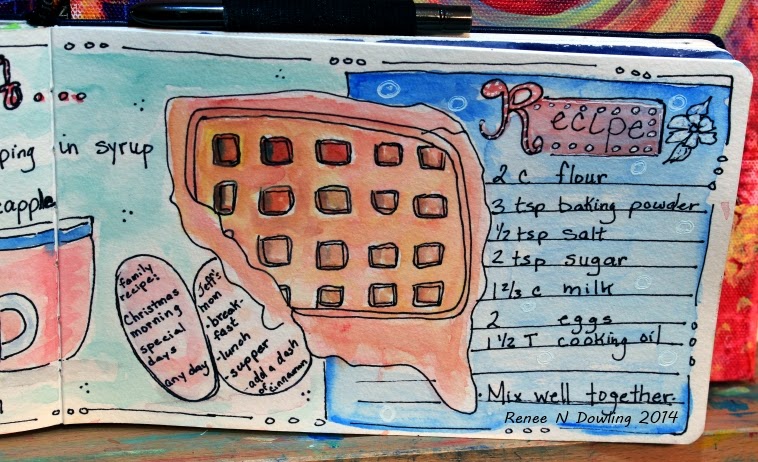 ping in syrup
eapple
family
recipe:
Christmas
morning
special
days
any day
Jeff's
mom
• break-
fast
• lunch
• supper
• add a dash
of cinnamon
Recipe
2 c flour
3 tsp baking powder
1/2 tsp salt
2 tsp sugar
1 2/3 c milk
2 eggs
1 1/2 T cooking oil
• Mix well together.
Renee N Dowling 2014